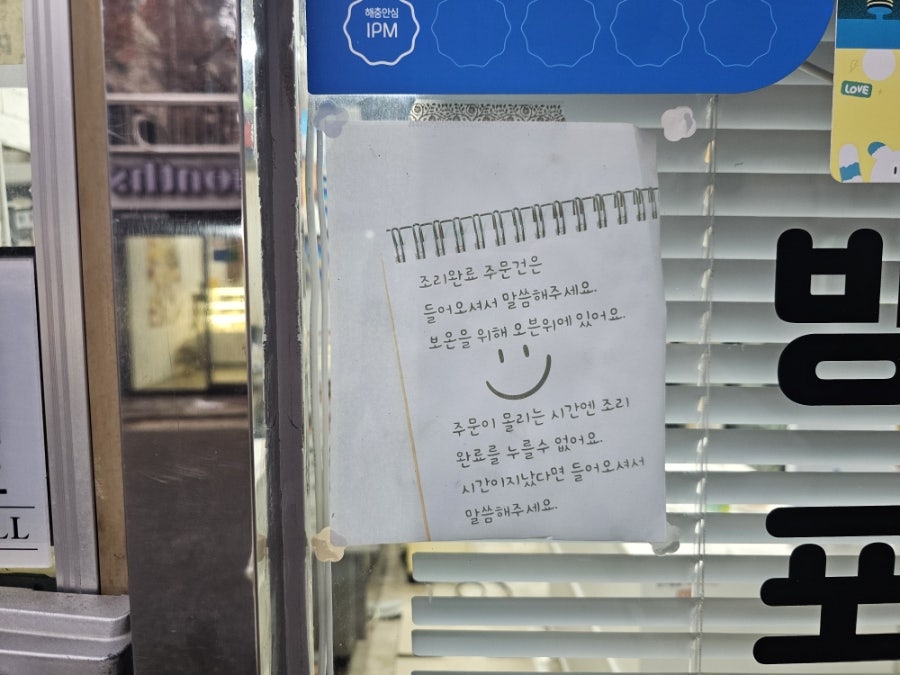 해충안심
IPM
LOVE
조리완료 주문건은
들어오셔서 말씀해주세요.
보온을 위해 오븐위에 있어요.
주문이 몰리는 시간엔 조리
완료를 누를수 없어요.
시간이지났다면 들어오셔서
말씀해주세요.
onths
LL
방